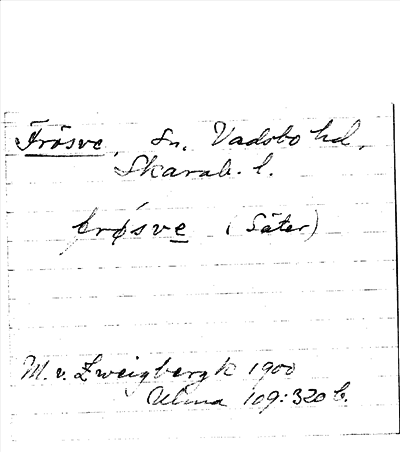 Frösve, Sn. Vadsbo hd,
Skarab. l.
frǿsve (Säter)
M. v. Zweigbergk 1900
Ulma 109:320 b.